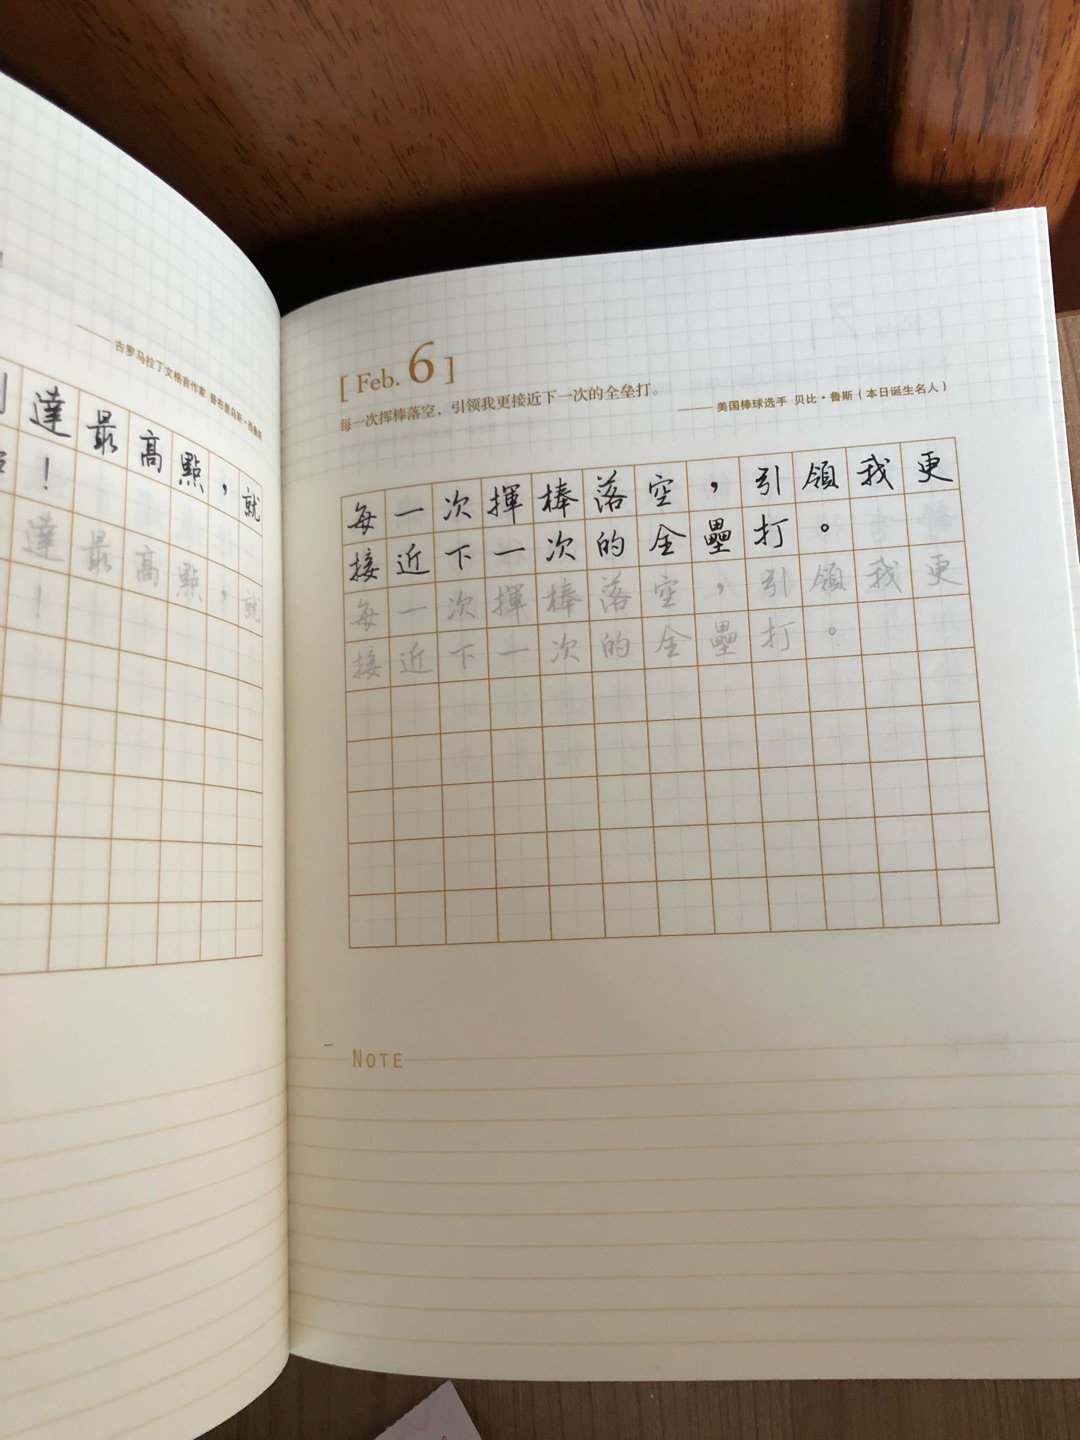 ——古罗马拉丁文格言作家 普布里乌斯·西鲁斯
達最高點，就
！
達最高點，就
！
[ Feb. 6 ]
每一次挥棒落空，引领我更接近下一次的全垒打。
——美国棒球选手 贝比·鲁斯（本日诞生名人）
每一次揮棒落空，引領我更
接近下一次的全壘打。
每一次揮棒落空，引領我更
接近下一次的全壘打。
NOTE